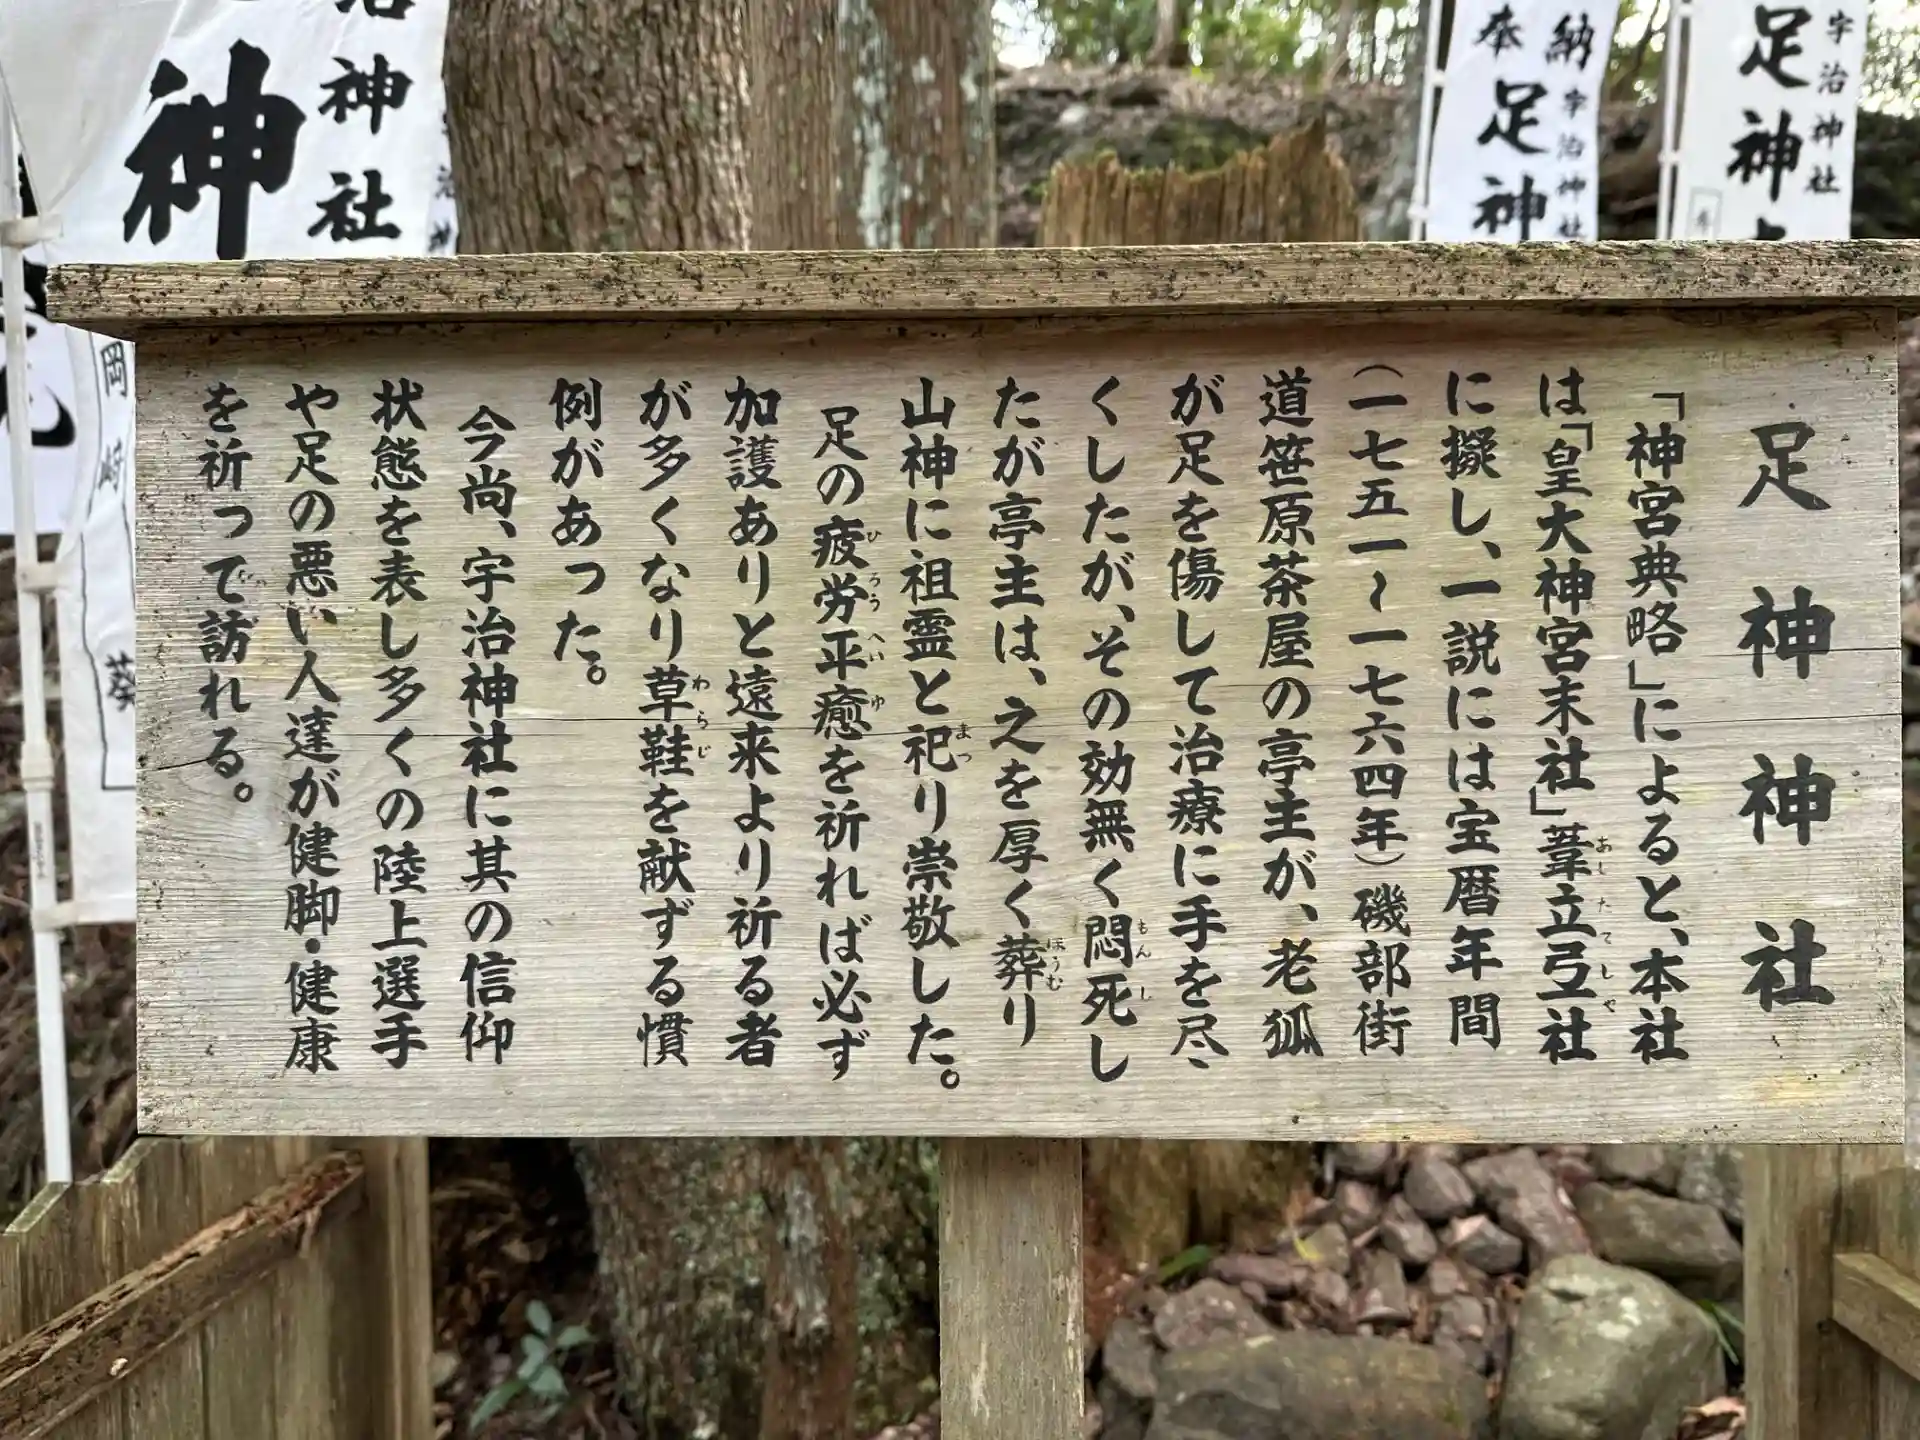 足神神社
「神宮典略」によると、本社
は「皇大神宮末社」葦立弖社
に擬し、一説には宝暦年間
（一七五一〜一七六四年）磯部街
道笹原茶屋の亭主が、老狐
が足を傷して治療に手を尽
くしたが、その効無く悶死し
たが亭主は、之を厚く葬り
山神に祖霊と祀り崇敬した。
足の疲労平癒を祈れば必ず
加護ありと遠来より祈る者
が多くなり草鞋を献ずる慣
例があった。
今尚、宇治神社に其の信仰
状態を表し多くの陸上選手
や足の悪い人達が健脚・健康
を祈って訪れる。
あしたてしや
もんし
ほうむ
まつ
ひろうへいゆ
わらじ
宇治神社
足神
納 宇治神社
奉 足神
治神社
神
岡崎
葵